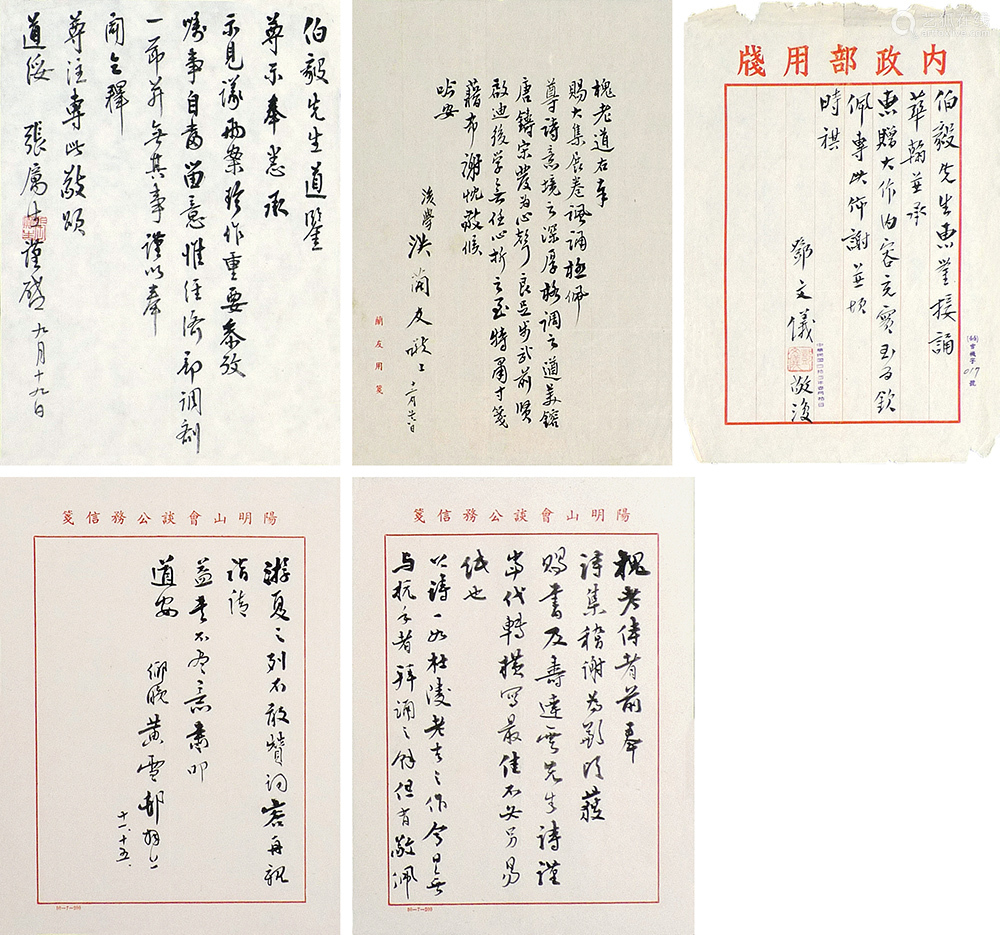 伯毅先生道鑒
尊示奉悉承
示見議兩案珍作重要參攷
囑事自當留意惟經濟部調劑
一節並無其事謹以奉
聞全釋
尊注專此敬頌
道綏
張厲生謹啓 九月十九日
槐老道右奉
賜大集展卷諷誦極佩
尊詩意境之深厚格調之遒美鎔
唐鑄宋發為心聲良足步武前賢
啟迪後學無任心折之至特肅寸箋
藉布謝忱敬候
吟安
後學洪蘭友敬上
蘭友用箋
內政部用牋
伯毅先生惠鑒接誦
華翰並承
惠贈大作內容充實至為欽
佩專此仰謝並頌
時祺
鄧文儀敬復
017號
陽明山會談公務信箋
槐老侍者前奉
詩集稽謝為歉頃獲
賜書及壽達雲先生詩謹
當代轉橫寫最佳不必另易
紙也
公詩一如杜陵老去之作今日無
与抗手者拜誦之餘但有敬佩
30-7-500
陽明山會談公務信箋
游夏之列不敢贊詞容再詣
請
益書不盡意肅叩
道安
鄉晚黃雪邨拜上
十一.十五.
30-7-500